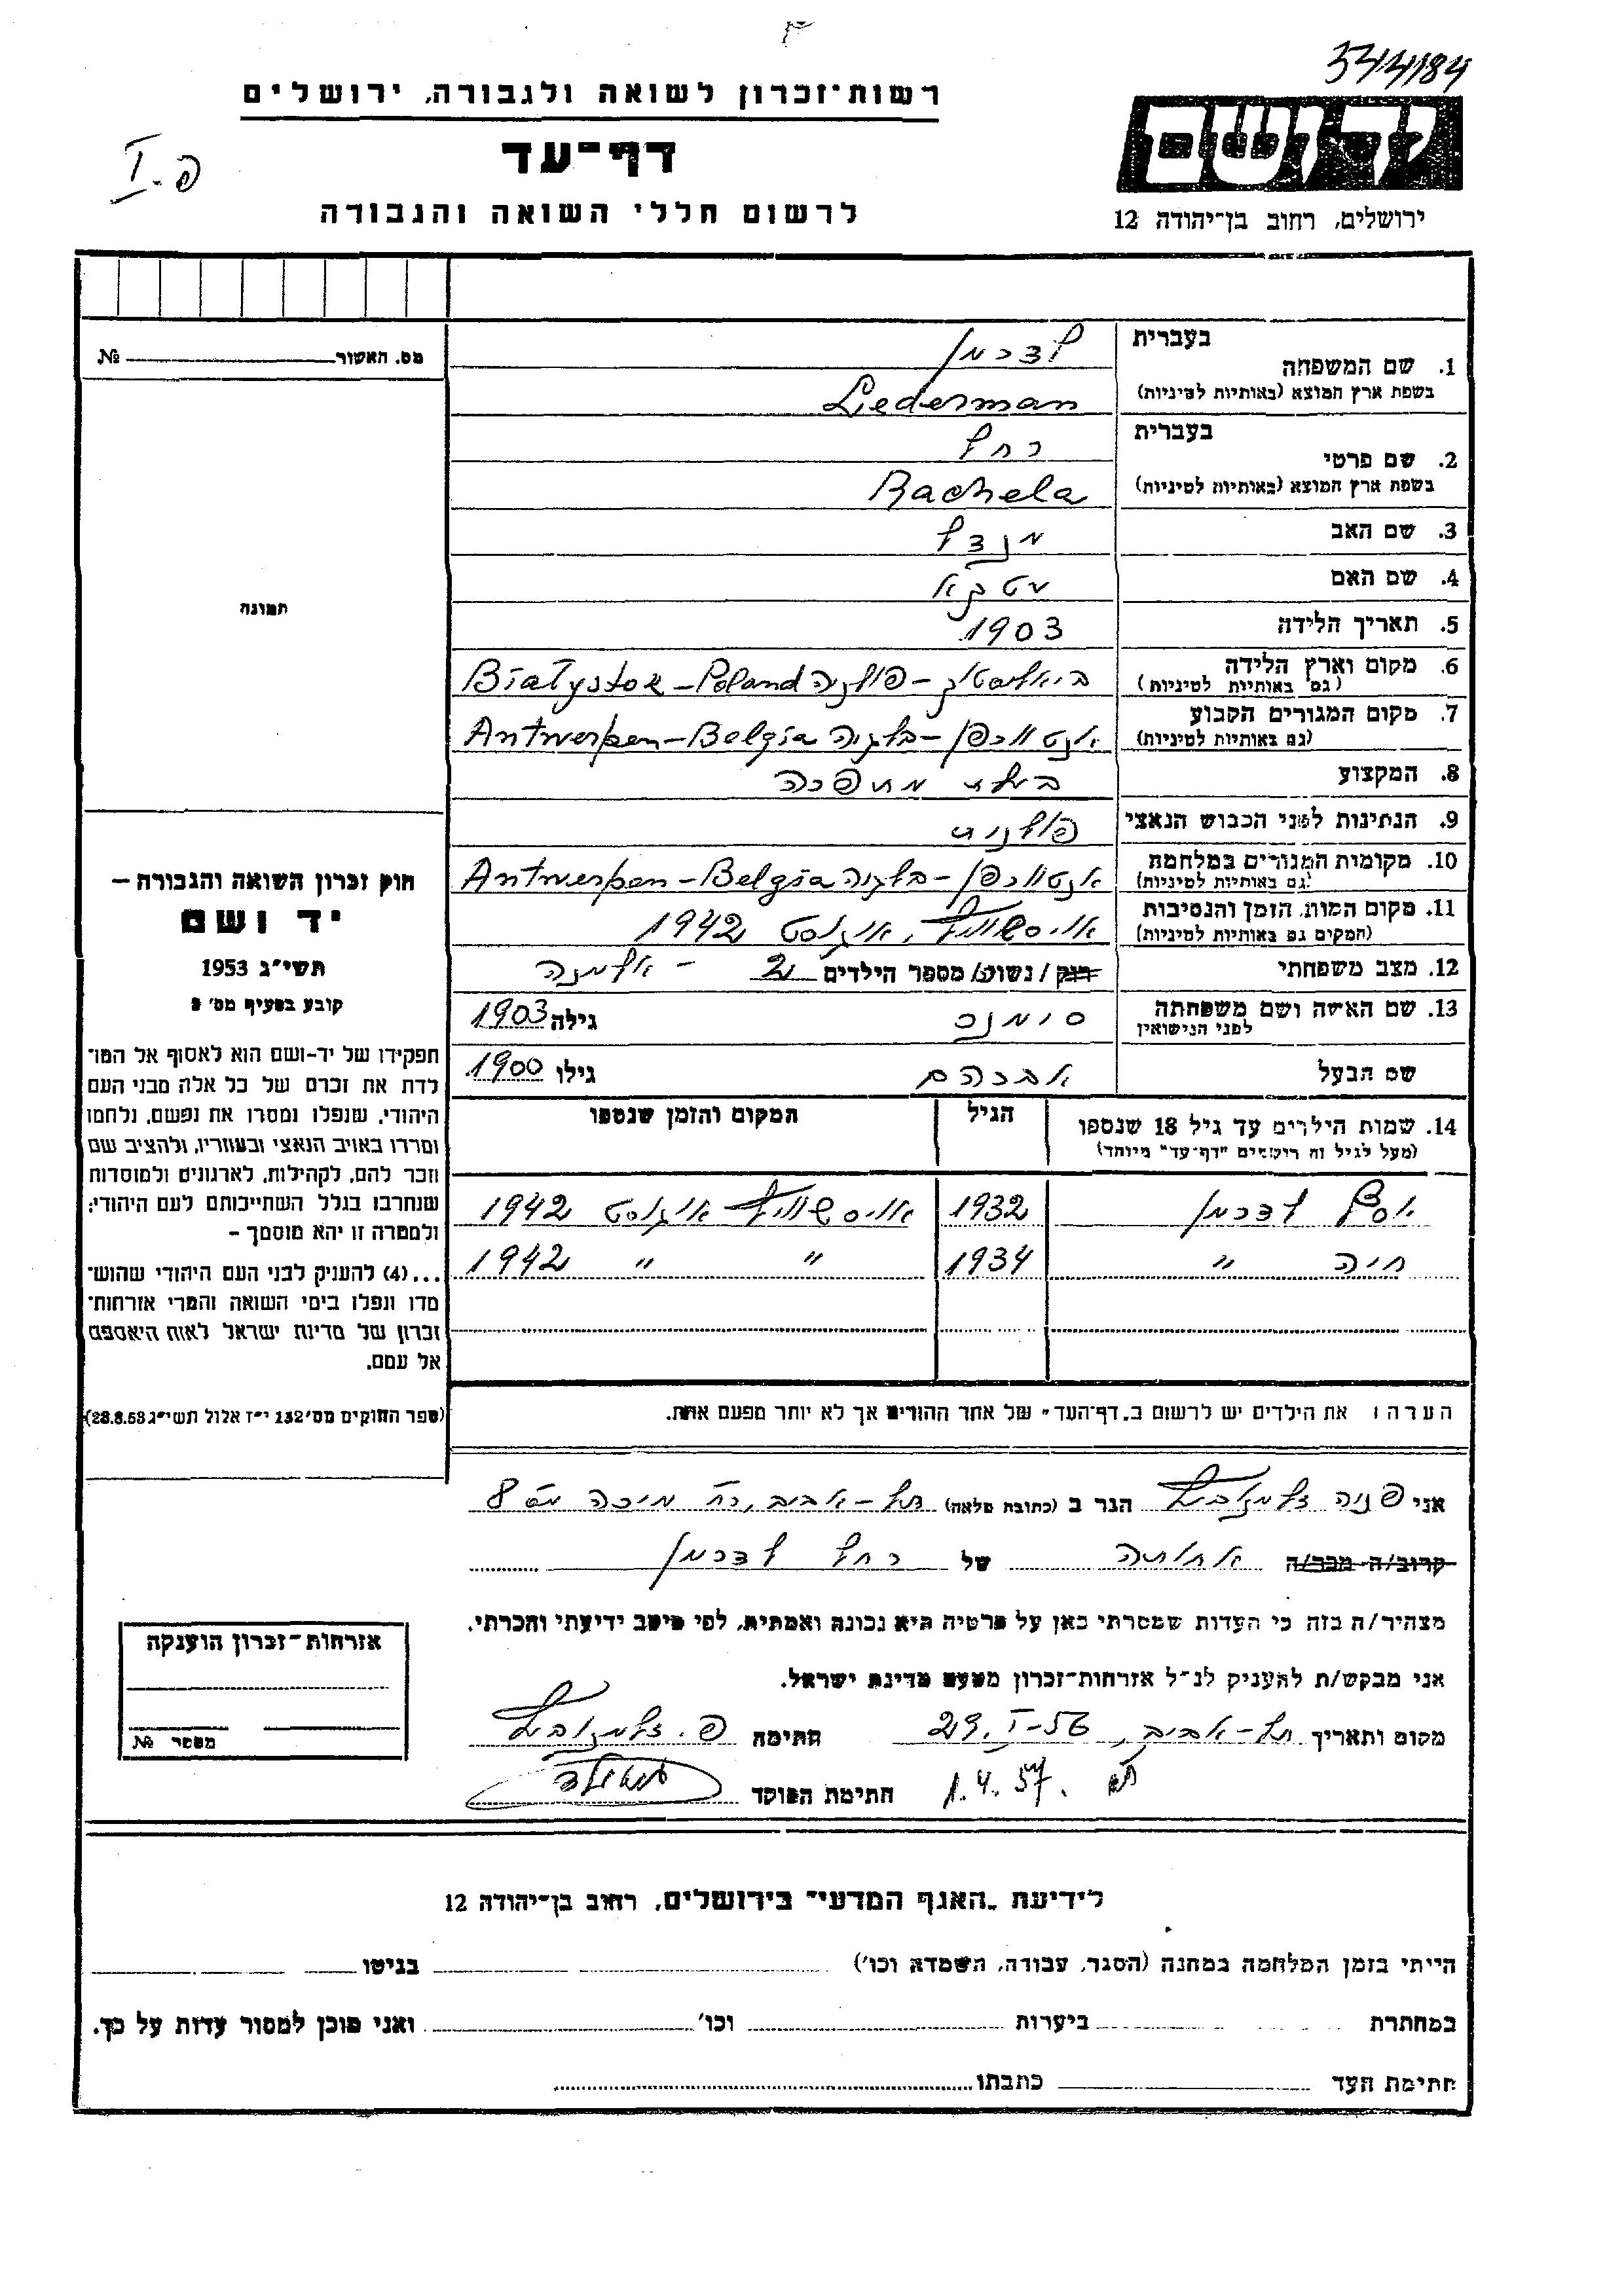 334/184
רשות־זכרון לשואה ולגבורה, ירושלים
דף־עד
לרשום חללי השואה והגבורה
פ. I
יד ושם
ירושלים, רחוב בן־יהודה 12
מס. האשור №
תמונה
בעברית
1. שם המשפחה לדרמן
בשפת ארץ המוצא (באותיות לטיניות) Lederman
בעברית
2. שם פרטי רחל
בשפת ארץ המוצא (באותיות לטיניות) Rachela
3. שם האב מנדל
4. שם האם
5. תאריך הלידה 1903
6. מקום וארץ הלידה ביאליסטוק – פולניה Białystok – Poland
(גם באותיות לטיניות)
7. מקום המגורים הקבוע אנטוורפן – בלגיה Antwerpen – Belgia
(גם באותיות לטיניות)
8. המקצוע בעלת מתפרה
9. הנתינות לפני הכבוש הנאצי פולנית
10. מקומות המגורים במלחמה אנטוורפן – בלגיה Antwerpen – Belgia
(גם באותיות לטיניות)
11. מקום המות, הזמן והנסיבות אוישוויץ, אוגוסט 1942
(המקום גם באותיות לטיניות)
12. מצב משפחתי רווק / נשוי / מספר הילדים 2 – אלמנה
13. שם האישה ושם משפחתה לפני הנישואין סימנר גילה 1903
שם הבעל אברהם גילו 1900
14. שמות הילדים עד גיל 18 שנספו הגיל המקום והזמן שנספו
(מעל לגיל זה רושמים "דף־עד" מיוחד)
יוסף לדרמן 1932 אוישוויץ אוגוסט 1942
חיה " 1934 " " 1942
חוק זכרון השואה והגבורה –
יד ושם
תשי״ג 1953
קובע בסעיף מס׳ 2
תפקידו של יד־ושם הוא לאסוף אל המו־
לדת את זכרם של כל אלה מבני העם
היהודי, שנפלו ומסרו את נפשם, נלחמו
ומרדו באויב הנאצי ובעוזריו, ולהציב שם
וזכר להם, לקהילות, לארגונים ולמוסדות
שנחרבו בגלל השתייכותם לעם היהודי;
ולמטרה זו יהא מוסמך –
...(4) להעניק לבני העם היהודי שהוש־
מדו ונפלו בימי השואה והמרי אזרחות־
זכרון של מדינת ישראל לאות היאספם
אל עמם.
(ספר החוקים מס׳ 132 י״ז אלול תשי״ג 28.8.53)
הערה: את הילדים יש לרשום ב„דף־העד״ של אחד ההורים אך לא יותר מפעם אחת.
אני פניה הגר ב (כתובת מלאה) תל–אביב, רח׳ מיכה מס 8
קרוב/ה מכר/ה אחותה של רחל לדרמן
מצהיר/ה בזה כי העדות שמסרתי כאן על פרטיה היא נכונה ואמתית, לפי מיטב ידיעתי והכרתי.
אני מבקש/ת להעניק לנ״ל אזרחות־זכרון מטעם מדינת ישראל.
מקום ותאריך תל–אביב, 29.I–56 חתימה
1.4.57 חתימת הפוקד
אזרחות־זכרון הוענקה
מספר №
לידיעת „האגף המדעי״ בירושלים, רחוב בן־יהודה 12
הייתי בזמן המלחמה במחנה (הסגר, עבודה, השמדה וכו׳) בגיטו
במחתרת ביערות וכו׳ ואני מוכן למסור עדות על כך.
חתימת העד כתבתו